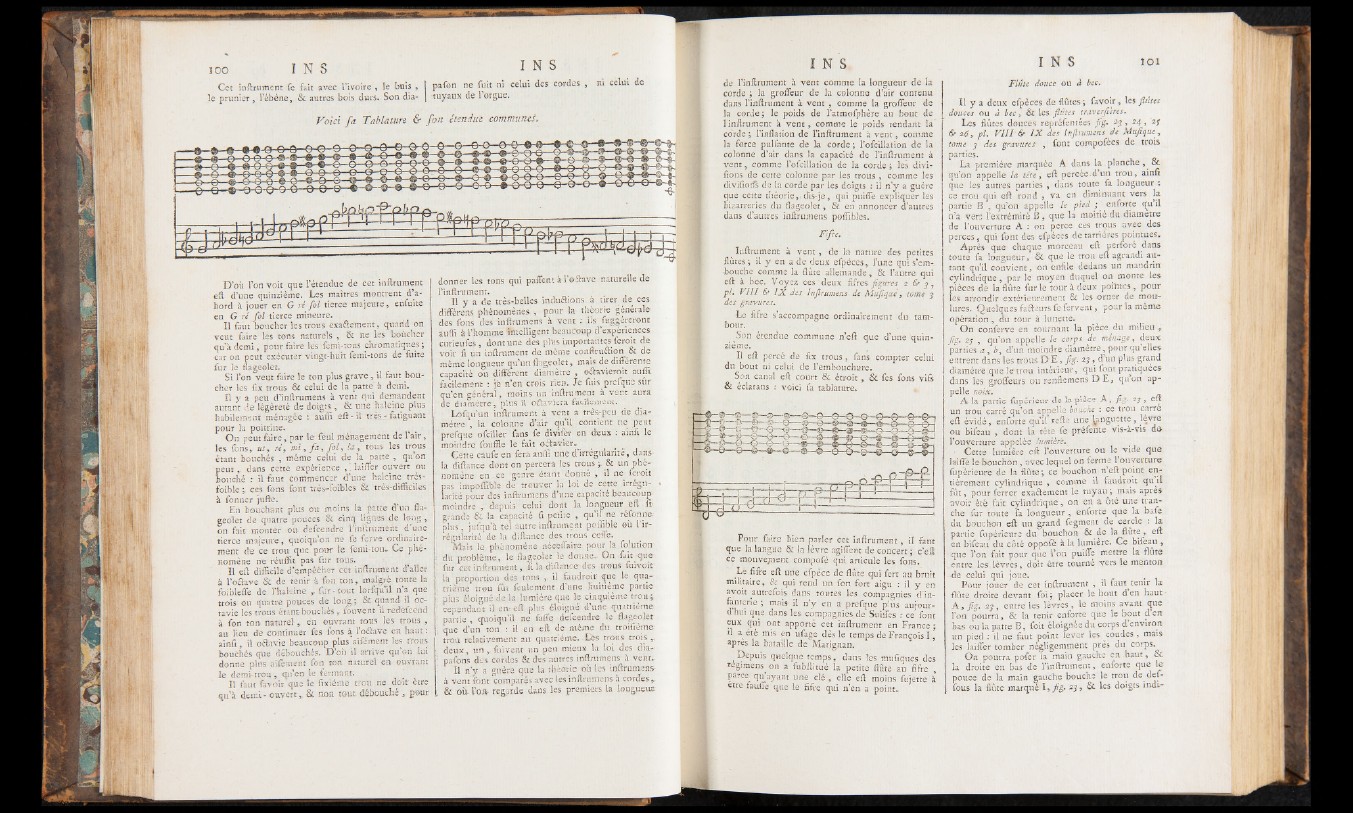 100 INS INS
Cet inſtrument ſe fait avec l'ivoire, le buis,
le prunier, l'ébène, & autres bois durs. Son dia-
paſon ne ſuit ni celui des cordes, ni celui de
tuyaux de l'orgue.
Voici ſa Tablature & ſon étendue communes.
D'où l'on voit que l'étendue de cet inſtrument
eſt d'une quinzième. Les maîtres montrent d'a-
bord à jouer en G ré ſol tierce majeure, enſuite
en G ré ſol tierce mineure.
Il faut boucher les trous exactement, quand on
veut faire les tons naturels, & ne les boucher
qu'à demi, pour faire les ſemi-tons chromatiques;
car on peut exécuter vingt-huit ſemi-tons de ſuite
ſur le flageolet.
Si l'on veut faire le ton plus grave, il faut bou-
cher les ſix trous & celui de la patte à demi.
Il y a peu d'inſtrumens à vent qui demandent
autant de légéreté de doigts, & une haleine plus
habilement ménagée : auſſi eſt-il très-fatiguant
pour la poitrine.
On peut faire, par le ſeul ménagement de l'air,
les ſons, ut, ré, mi, fa, ſol, la, tous les trous
étant bouchés, même celui de la patte, qu'on
peut, dans cette expérience, laiſſer ouvert ou
bouché : il faut commencer d'une haleine très-
foible; ces ſons ſont très-foibles & très-difficiles
à former juſte.
En bouchant plus ou moins la patte d'un fla-
geolet de quatre pouces & cinq lignes de long,
on fait monter ou deſcendre l'inſtrument d'une
tierce majeure, quoiqu'on ne ſe ſerve ordinaire-
ment de ce trou que pour le ſemi-ton. Ce phé-
nomène ne réuſſit pas ſur tous.
Il eſt difficile d'empêcher cet inſtrument d'aller
à l'octave & de tenir à ſon ton, malgré toute la
foibleſſe de l'haleine, ſur-tout lorſqu'il n'a que
trois ou quatre pouces de long; & quand il oc-
tavie les trous étant bouchés, ſouvent il redeſcend
à ſon ton naturel, en ouvrant tous les trous,
au lieu de continuer ſes ſons à l'octave en haut:
ainſi, il octavie beaucoup plus aiſément les trous
bouchés que débouchés. D'où il arrive qu'on lui
donne plus aiſément ſon ton naturel en ouvrant
le demi-trou, qu'en le fermant.
Il faut ſavoir que le ſixième trou ne doit être
qu'à demi-ouvert, & non tout débouché, pour
donner les tons qui paſſent à l'octave naturelle de
l'inſtrument.
Il y a de très-belles inductions à tirer de ces
différens phénomènes, pour la théorie générale
des ſons des inſtrumens à vent : ils ſuggéreront
auſſi à l'homme intelligent beaucoup d'expériences
curieuſes, dont une des plus importantes ſeroit de
voir ſi un inſtrument de même conſtruction & de
même longueur qu'un flageolet, mais de différente
capacité ou différent diamètre, octavieroit auſſi
facilement : je n'en crois rien. Je ſuis preſque sûr
qu'en général, moins un inſtrument à vent aura
de diamètre, plus il octaviera facilement.
Lorſqu'un inſtrument à vent a très-peu de dia-
mètre, la colonne d'air qu'il contient ne peut
preſque oſciller ſans ſe diviſer en deux : ainſi le
moindre ſouffle le fait octavier.
Cette cauſe en ſera auſſi une d'irrégularité, dans
la diſtance dont on percera les trous; & un phé-
nomène en ce genre étant donné, il ne ſeroit
pas impoſſible de trouver la loi de cette irrégu-
larité pour des inſtrumens d'une capacité beaucoup
moindre, depuis celui dont la longueur eſt ſi
grande & la capacité ſi petite, qu'il ne réſonne
plus, juſqu'à tel autre inſtrument poſſible où l'ir-
régularité de la diſtance des trous ceſſe.
Mais le phénomène néceſſaire pour la ſolution
du problème, le flageolet le donne. On ſait que
ſur cet inſtrument, ſi la diſtance des trous ſuivoit
la proportion des tons, il faudroit que le qua-
trième trou fût ſeulement d'une huitième partie
plus éloigné de la lumière que le cinquième trou;
cependant il en eſt plus éloigné d'une quatrième
partie, quoiqu'il ne faſſe deſcendre le flageolet
que d'un ton : il en eſt de même du troiſième
trou relativement au quatrième. Les trous trois,
deux, un, ſuivent un peu mieux la loi des dia-
paſons des cordes & des autres inſtrumens à vent.
Il n'y a guère que la théorie où les inſtrumens
à vent ſont comparés avec les inſtrumens à cordes,
& où l'on regarde dans les premiers la longueur
INS INS 101
de l'inſtrument à vent comme la longueur de la
corde; la groſſeur de la colonne d'air contenu
dans l'inſtrument à vent, comme la groſſeur de
la corde; le poids de l'atmoſphère au bout de
l'inſtrument à vent, comme le poids tendant la
corde; l'inflation de l'inſtrument à vent, comme
la force pulſante de la corde; l'oſcillation de la
colonne d'air dans la capacité de l'inſtrument à
vent, comme l'oſcillation de la corde; les divi-
ſions de cette colonne par les trous, comme les
diviſions de la corde par les doigts : il n'y a guère
que cette théorie, dis-je, qui puiſſe expliquer les
bizarreries du flageolet, & en annoncer d'autres
dans d'autres inſtrumens poſſibles.
Fifre.
Inſtrument à vent, de la nature des petites
flûtes; il y en a de deux eſpèces, l'une qui s'em-
bouche comme la flûte allemande, & l'autre qui
eſt à bec. Voyez ces deux fifres figures 2 & 3,
pl. VIII & IX des Inſtrumens de Muſique, tome 3
des gravures.
Le fifre s'accompagne ordinairement du tam-
bour.
Son étendue commune n'eſt que d'une quin-
zième.
Il eſt percé de ſix trous, ſans compter celui
du bout ni celui de l'embouchure.
Son canal eſt court & étroit, & ſes ſons vifs
& éclatans : voici ſa tablature.
Pour faire bien parler cet inſtrument, il faut
que la langue & la lèvre agiſſent de concert; c'eſt
ce mouvement compoſé qui articule les ſons.
Le fifre eſt une eſpèce de flûte qui ſert au bruit
militaire, & qui rend un ſon fort aigu : il y en
avoit autrefois dans toutes les compagnies d'in-
fanterie; mais il n'y en a preſque plus aujour-
d'hui que dans les compagnies de Suiſſes : ce ſont
eux qui ont apporté cet inſtrument en France;
il a été mis en uſage dès le temps de François I,
après la bataille de Marignan.
Depuis quelque temps, dans les muſiques des
régimens on a ſubſtitué la petite flûte au fifre,
parce qu'ayant une clé, elle eſt moins ſujette à
être fauſſe que le fifre qui n'en a point.
Flûte douce ou à bec.
Il y a deux eſpèces de flûtes; ſavoir, les flûtes
douces ou à bec, & les flûtes traverſières.
Les flûtes douces repréſentées fig. 23, 24, 25
& 26, pl. VIII & IX des Inſtrumens de Muſique,
tome 3 des gravures, ſont compoſées de trois
parties.
La première marquée A dans la planche, &
qu'on appelle la tête, eſt percée d'un trou, ainſi
que les autres parties, dans toute ſa longueur :
ce trou qui eſt rond, va en diminuant vers la
partie B, qu'on appelle le pied; enſorte qu'il
n'a vers l'extrémité B, que la moitié du diamètre
de l'ouverture A : on perce ces trous avec des
perces, qui ſont des eſpèces de tarrières pointues.
Après que chaque morceau eſt perforé dans
toute ſa longueur, & que le trou eſt agrandi au-
tant qu'il convient, on enfile dedans un mandrin
cylindrique, par le moyen duquel on monte les
pièces de la flûte ſur le tour à deux pointes, pour
les arrondir extérieurement & les orner de mou-
lures. Quelques facteurs ſe ſervent, pour la même
opération, du tour à lunette.
On conſerve en tournant la pièce du milieu,
fig. 25, qu'on appelle le corps de ménage, deux
parties a, b, d'un moindre diamètre, pour qu'elles
entrent dans les trous D E, fig. 23, d'un plus grand
diamètre que le trou intérieur, qui ſont pratiquées
dans les groſſeurs ou renflemens D E, qu'on ap-
pelle noix.
A la partie ſupérieure de la pièce A, fig. 23, eſt
un trou carré qu'on appelle bouche : ce trou carré
eſt évidé, enſorte qu'il reſte une languette, lèvre
ou biſeau, dont la tête ſe préſente vis-à-vis de
l'ouverture appelée lumière.
Cette lumière eſt l'ouverture ou le vide que
laiſſe le bouchon, avec lequel on ferme l'ouverture
ſupérieure de la flûte; ce bouchon n'eſt point en-
tièrement cylindrique, comme il faudroit qu'il
fût, pour fermer exactement le tuyau; mais après
avoir été fait cylindrique, on en a ôté une tran-
che ſur toute ſa longueur, enſorte que la baſe
du bouchon eſt un grand ſegment de cercle : la
partie ſupérieure du bouchon & de la flûte, eſt
en biſeau du côté oppoſé à la lumière. Ce biſeau,
que l'on fait pour que l'on puiſſe mettre la flûte
entre les lèvres, doit être tourné vers le menton
de celui qui joue.
Pour jouer de cet inſtrument, il faut tenir la
flûte droite devant ſoi; placer le bout d'en haut
A, fig. 23, entre les lèvres, le moins avant que
l'on pourra, & la tenir enſorte que le bout d'en
bas ou la patte B, ſoit éloignée du corps d'environ
un pied : il ne faut point lever les coudes, mais
les laiſſer tomber négligemment près du corps.
On pourra poſer la main gauche en haut, &
la droite en bas de l'inſtrument, enſorte que le
pouce de la main gauche bouche le trou de deſ-
ſous la flûte marqué 1, fig. 23, & les doigts indi-